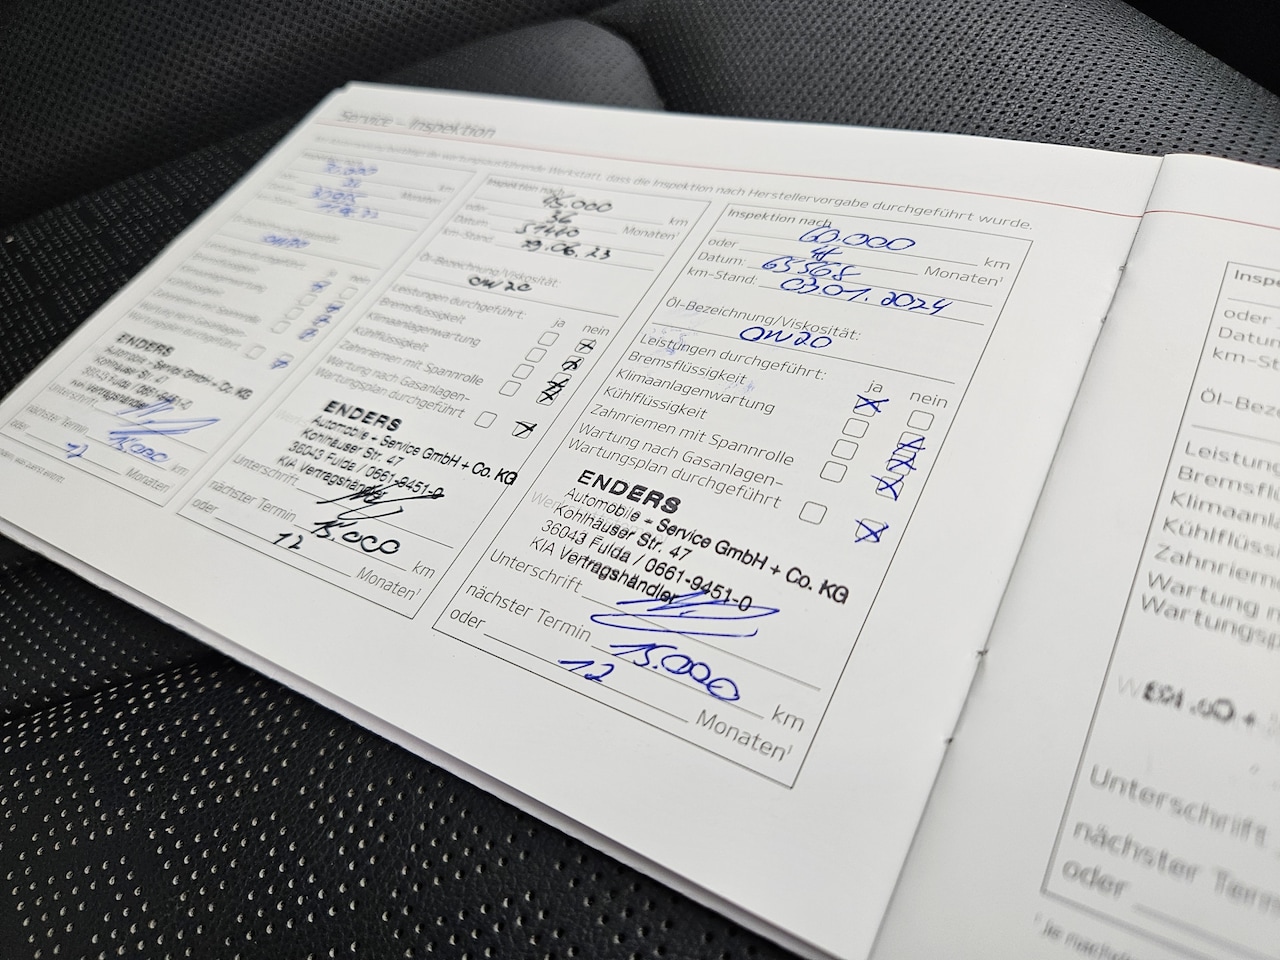 Service – Inspektion
dass die Inspektion nach Herstellervorgabe durchgeführt wurde.
30.000
km
Monaten
ENDERS
Automobile + Service GmbH + Co. KG
Kohlhäuser Str. 47
36043 Fulda / 0661-9451-0
KIA Vertragshändler
Unterschrift
nächster Termin 15.000 km
oder 12 Monaten¹
Inspektion nach 45.000 km
oder 36 Monaten¹
Datum: 51440
km-Stand: 19.06.23
Öl-Bezeichnung/Viskosität:
0W20
Leistungen durchgeführt: ja nein
Bremsflüssigkeit
Klimaanlagenwartung
Kühlflüssigkeit
Zahnriemen mit Spannrolle
Wartung nach Gasanlagen-
Wartungsplan durchgeführt
ENDERS
Automobile + Service GmbH + Co. KG
Kohlhäuser Str. 47
36043 Fulda / 0661-9451-0
KIA Vertragshändler
Unterschrift
nächster Termin 15.000 km
oder 12 Monaten¹
Inspektion nach 60.000 km
oder Monaten¹
Datum: 65568
km-Stand: 03.01.2024
Öl-Bezeichnung/Viskosität:
0W20
Leistungen durchgeführt: ja nein
Bremsflüssigkeit
Klimaanlagenwartung
Kühlflüssigkeit
Zahnriemen mit Spannrolle
Wartung nach Gasanlagen-
Wartungsplan durchgeführt
ENDERS
Automobile + Service GmbH + Co. KG
Kohlhäuser Str. 47
36043 Fulda / 0661-9451-0
KIA Vertragshändler
Unterschrift
nächster Termin 15.000 km
oder 12 Monaten¹
Inspe
oder
Datum
km-St
Öl-Bez
Leistung
Bremsflü
Klimaanl
Kühlflüssi
Zahnriem
Wartung n
Wartungspl
Unterschrift
nächster Term
oder